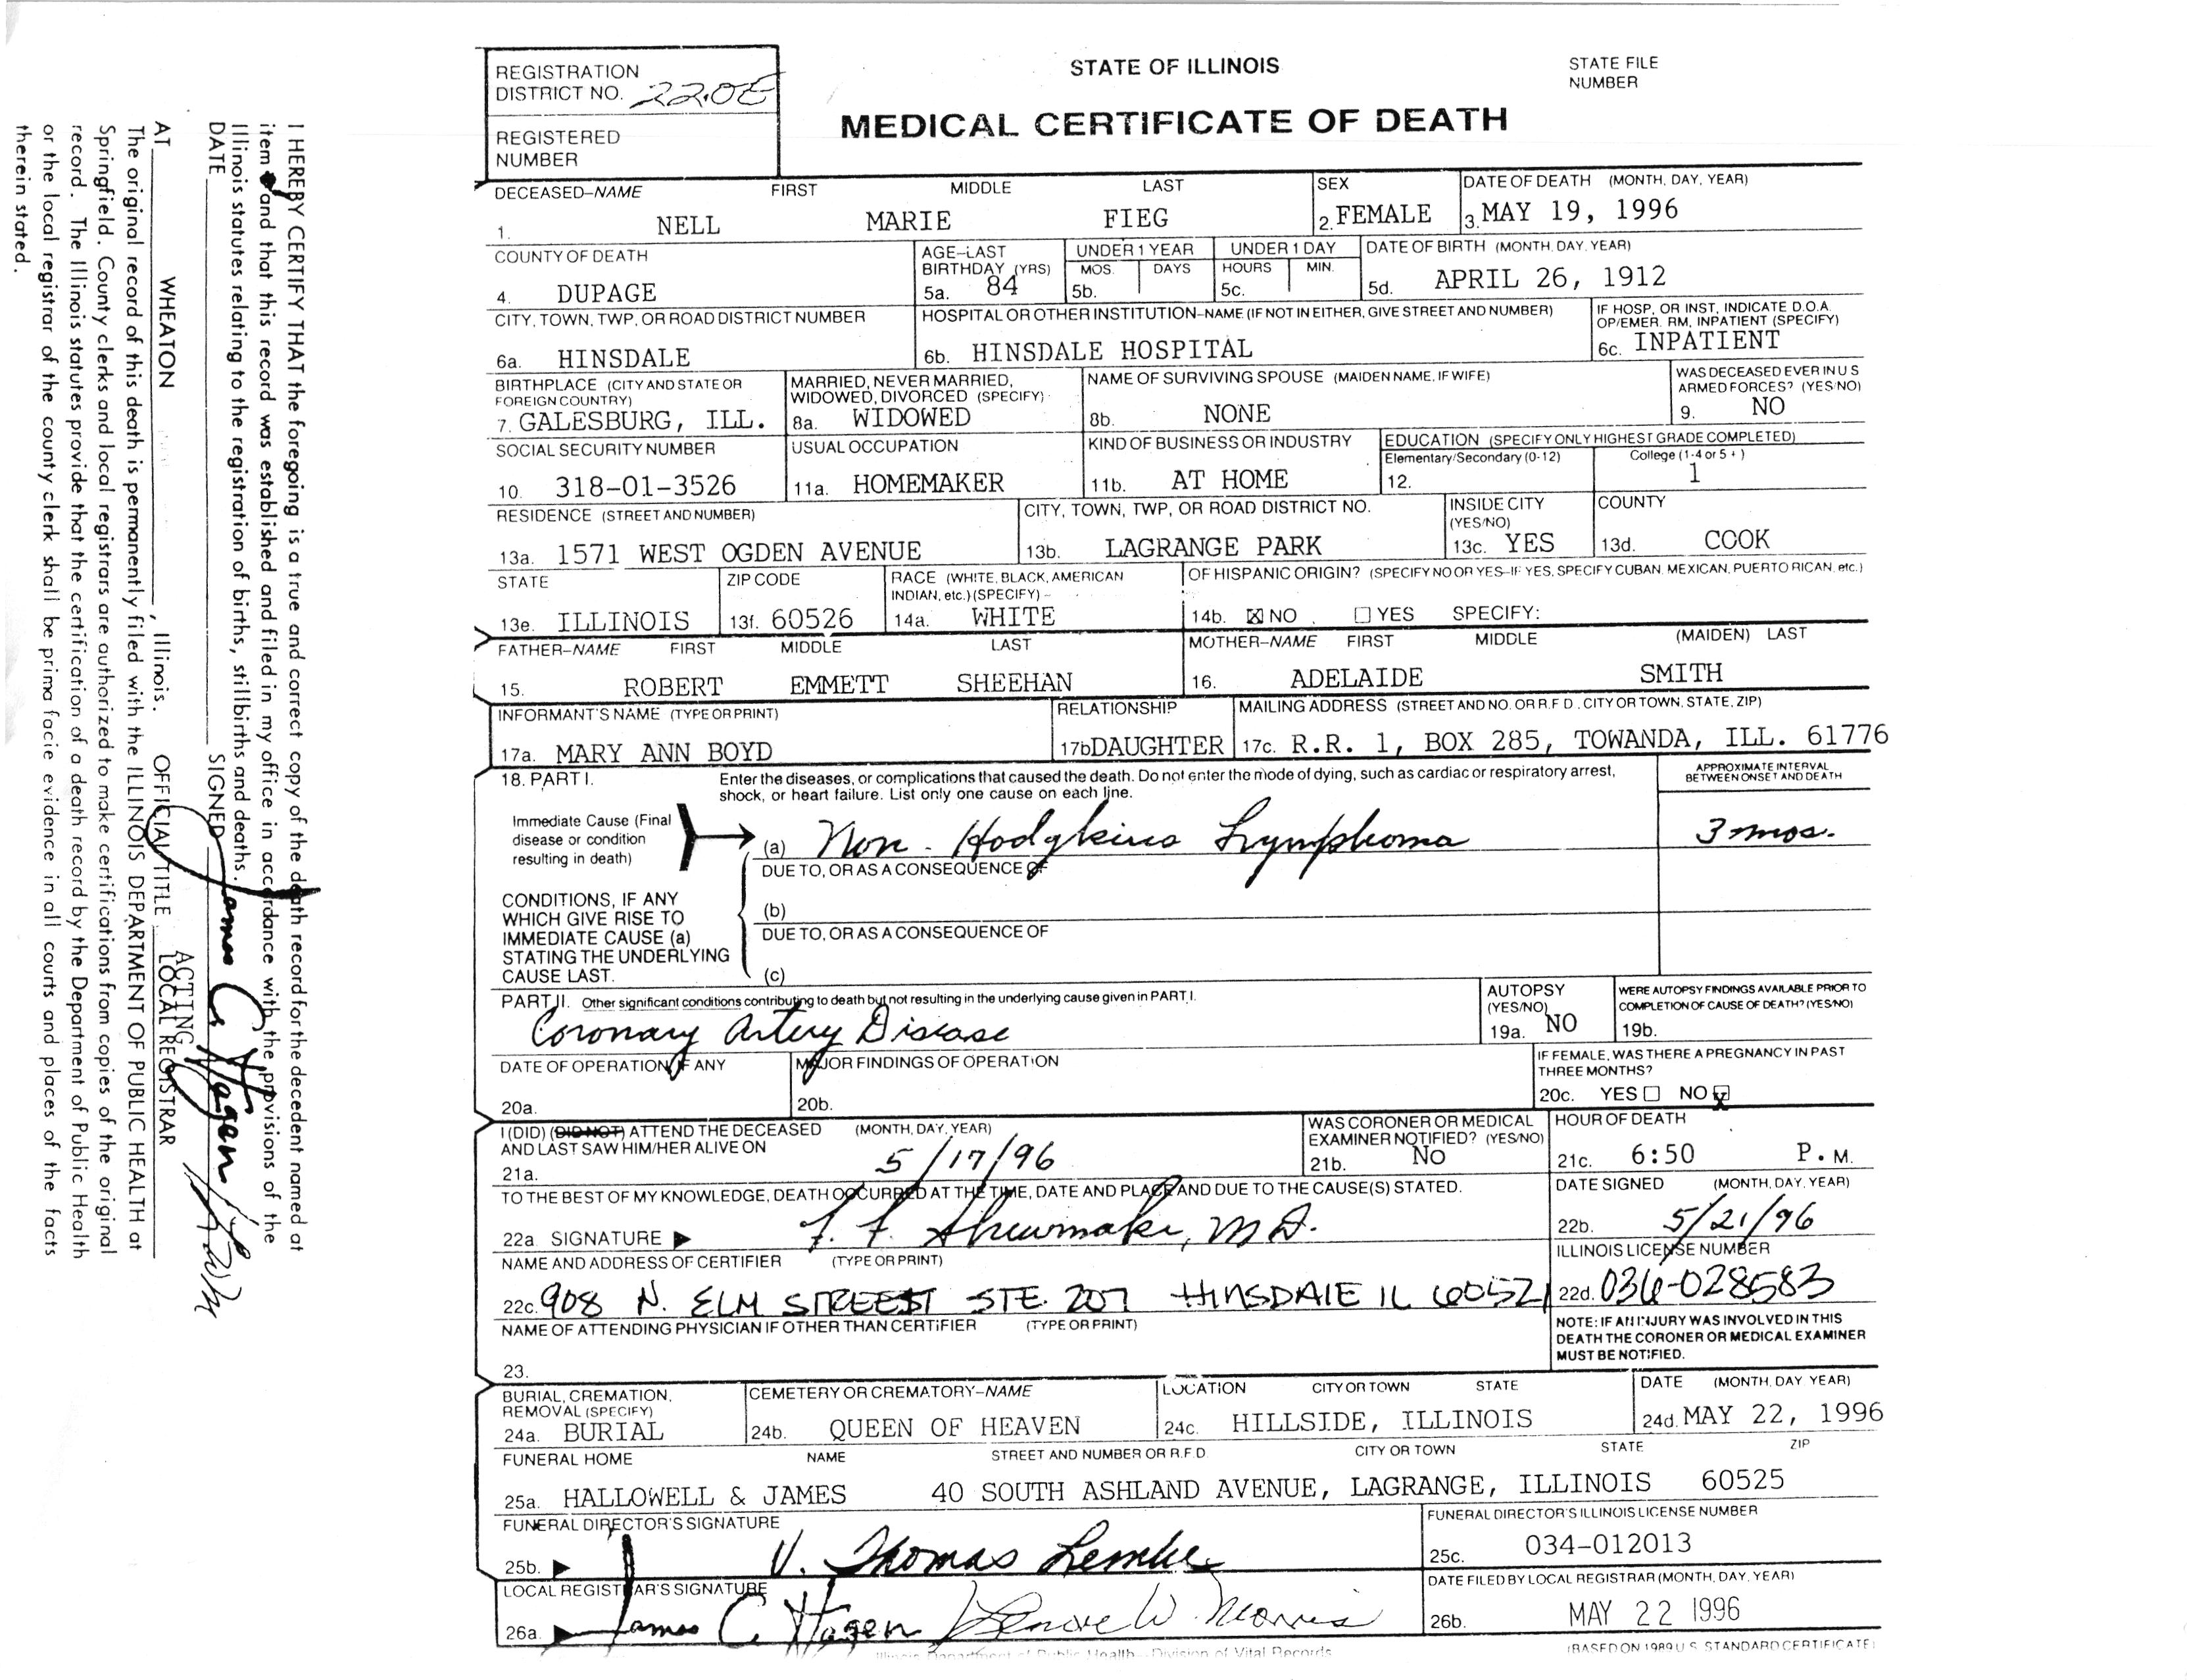 REGISTRATION
DISTRICT NO. 22.0E
REGISTERED
NUMBER
STATE OF ILLINOIS
STATE FILE
NUMBER
MEDICAL CERTIFICATE OF DEATH
DECEASED–NAME FIRST MIDDLE LAST
1. NELL MARIE FIEG
SEX
2. FEMALE
DATE OF DEATH (MONTH, DAY, YEAR)
3. MAY 19, 1996
COUNTY OF DEATH
4. DUPAGE
AGE–LAST
BIRTHDAY (YRS)
5a. 84
UNDER 1 YEAR
MOS. DAYS
5b.
UNDER 1 DAY
HOURS MIN.
5c.
DATE OF BIRTH (MONTH, DAY, YEAR)
5d. APRIL 26, 1912
CITY, TOWN, TWP, OR ROAD DISTRICT NUMBER
6a. HINSDALE
HOSPITAL OR OTHER INSTITUTION–NAME (IF NOT IN EITHER, GIVE STREET AND NUMBER)
6b. HINSDALE HOSPITAL
IF HOSP, OR INST, INDICATE D.O.A.
OP/EMER. RM, INPATIENT (SPECIFY)
6c. INPATIENT
BIRTHPLACE (CITY AND STATE OR
FOREIGN COUNTRY)
7. GALESBURG, ILL.
MARRIED, NEVER MARRIED,
WIDOWED, DIVORCED (SPECIFY)
8a. WIDOWED
NAME OF SURVIVING SPOUSE (MAIDEN NAME, IF WIFE)
8b. NONE
WAS DECEASED EVER IN U S
ARMED FORCES? (YES/NO)
9. NO
SOCIAL SECURITY NUMBER
10. 318-01-3526
USUAL OCCUPATION
11a. HOMEMAKER
KIND OF BUSINESS OR INDUSTRY
11b. AT HOME
EDUCATION (SPECIFY ONLY HIGHEST GRADE COMPLETED)
Elementary/Secondary (0-12) College (1-4 or 5+)
12. 1
RESIDENCE (STREET AND NUMBER)
13a. 1571 WEST OGDEN AVENUE
CITY, TOWN, TWP, OR ROAD DISTRICT NO.
13b. LAGRANGE PARK
INSIDE CITY
(YES/NO)
13c. YES
COUNTY
13d. COOK
STATE
13e. ILLINOIS
ZIP CODE
13f. 60526
RACE (WHITE, BLACK, AMERICAN
INDIAN, etc.) (SPECIFY)
14a. WHITE
OF HISPANIC ORIGIN? (SPECIFY NO OR YES–IF YES, SPECIFY CUBAN, MEXICAN, PUERTO RICAN, etc.)
14b. ☒ NO ☐ YES SPECIFY:
FATHER–NAME FIRST MIDDLE LAST
15. ROBERT EMMETT SHEEHAN
MOTHER–NAME FIRST MIDDLE (MAIDEN) LAST
16. ADELAIDE SMITH
INFORMANT'S NAME (TYPE OR PRINT)
17a. MARY ANN BOYD
RELATIONSHIP
17b DAUGHTER
MAILING ADDRESS (STREET AND NO. OR R.F.D., CITY OR TOWN, STATE, ZIP)
17c. R.R. 1, BOX 285, TOWANDA, ILL. 61776
18. PART I. Enter the diseases, or complications that caused the death. Do not enter the mode of dying, such as cardiac or respiratory arrest,
shock, or heart failure. List only one cause on each line.
APPROXIMATE INTERVAL
BETWEEN ONSET AND DEATH
Immediate Cause (Final
disease or condition
resulting in death)
(a) Non-Hodgkins Lymphoma 3 mos.
DUE TO, OR AS A CONSEQUENCE OF
CONDITIONS, IF ANY
WHICH GIVE RISE TO
IMMEDIATE CAUSE (a)
STATING THE UNDERLYING
CAUSE LAST.
(b)
DUE TO, OR AS A CONSEQUENCE OF
(c)
PART II. Other significant conditions contributing to death but not resulting in the underlying cause given in PART I.
Coronary Artery Disease
AUTOPSY
(YES/NO)
19a. NO
WERE AUTOPSY FINDINGS AVAILABLE PRIOR TO
COMPLETION OF CAUSE OF DEATH? (YES/NO)
19b.
DATE OF OPERATION, IF ANY
20a.
MAJOR FINDINGS OF OPERATION
20b.
IF FEMALE, WAS THERE A PREGNANCY IN PAST
THREE MONTHS?
20c. YES ☐ NO ☒
I (DID) (DID NOT) ATTEND THE DECEASED (MONTH, DAY, YEAR)
AND LAST SAW HIM/HER ALIVE ON
21a. 5/17/96
WAS CORONER OR MEDICAL
EXAMINER NOTIFIED? (YES/NO)
21b. No
HOUR OF DEATH
21c. 6:50 P. M.
TO THE BEST OF MY KNOWLEDGE, DEATH OCCURRED AT THE TIME, DATE AND PLACE AND DUE TO THE CAUSE(S) STATED.
22a. SIGNATURE ▶ F. F. Shewmake, M.D.
DATE SIGNED (MONTH, DAY, YEAR)
22b. 5/21/96
NAME AND ADDRESS OF CERTIFIER (TYPE OR PRINT)
22c. 908 N. ELM STREEST STE. 207 HINSDALE IL 60521
ILLINOIS LICENSE NUMBER
22d. 036-028583
NAME OF ATTENDING PHYSICIAN IF OTHER THAN CERTIFIER (TYPE OR PRINT)
23.
NOTE: IF AN INJURY WAS INVOLVED IN THIS
DEATH THE CORONER OR MEDICAL EXAMINER
MUST BE NOTIFIED.
BURIAL, CREMATION,
REMOVAL (SPECIFY)
24a. BURIAL
CEMETERY OR CREMATORY–NAME
24b. QUEEN OF HEAVEN
LOCATION CITY OR TOWN STATE
24c. HILLSIDE, ILLINOIS
DATE (MONTH, DAY YEAR)
24d. MAY 22, 1996
FUNERAL HOME NAME STREET AND NUMBER OR R.F.D. CITY OR TOWN STATE ZIP
25a. HALLOWELL & JAMES 40 SOUTH ASHLAND AVENUE, LAGRANGE, ILLINOIS 60525
FUNERAL DIRECTOR'S SIGNATURE
25b. ▶ V. Thomas Lemke
FUNERAL DIRECTOR'S ILLINOIS LICENSE NUMBER
25c. 034-012013
LOCAL REGISTRAR'S SIGNATURE
26a. ▶ James C. Hagen Lenore W. Morris
DATE FILED BY LOCAL REGISTRAR (MONTH, DAY, YEAR)
26b. MAY 22 1996
Illinois Department of Public Health – Division of Vital Records
(BASED ON 1989 U.S. STANDARD CERTIFICATE)
I HEREBY CERTIFY THAT the foregoing is a true and correct copy of the death record for the decedent named at
item and that this record was established and filed in my office in accordance with the provisions of the
Illinois statutes relating to the registration of births, stillbirths and deaths.
DATE SIGNED James C. Hagen
AT WHEATON, Illinois. OFFICIAL TITLE ACTING LOCAL REGISTRAR
The original record of this death is permanently filed with the ILLINOIS DEPARTMENT OF PUBLIC HEALTH at
Springfield. County clerks and local registrars are authorized to make certifications from copies of the original
record. The Illinois statutes provide that the certification of a death record by the Department of Public Health
or the local registrar of the county clerk shall be prima facie evidence in all courts and places of the facts
therein stated.